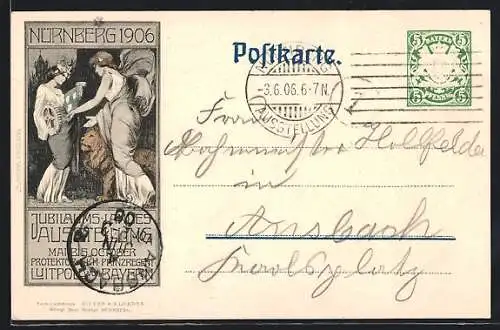 NÜRNBERG 1906
JUBILÄUMS-LANDES
AUSSTELLUNG
MAI BIS OCTOBER
PROTEKTOR S.K.H. PRINZREGENT
LUITPOLD V. BAYERN
Postkarte.
-3.6.06.6-7N.
AUSSTELLUNG
BAYERN
5 5
PFENNIG
5 5
Frau
Hollfelder
in
Ansbach
Karolsplatz